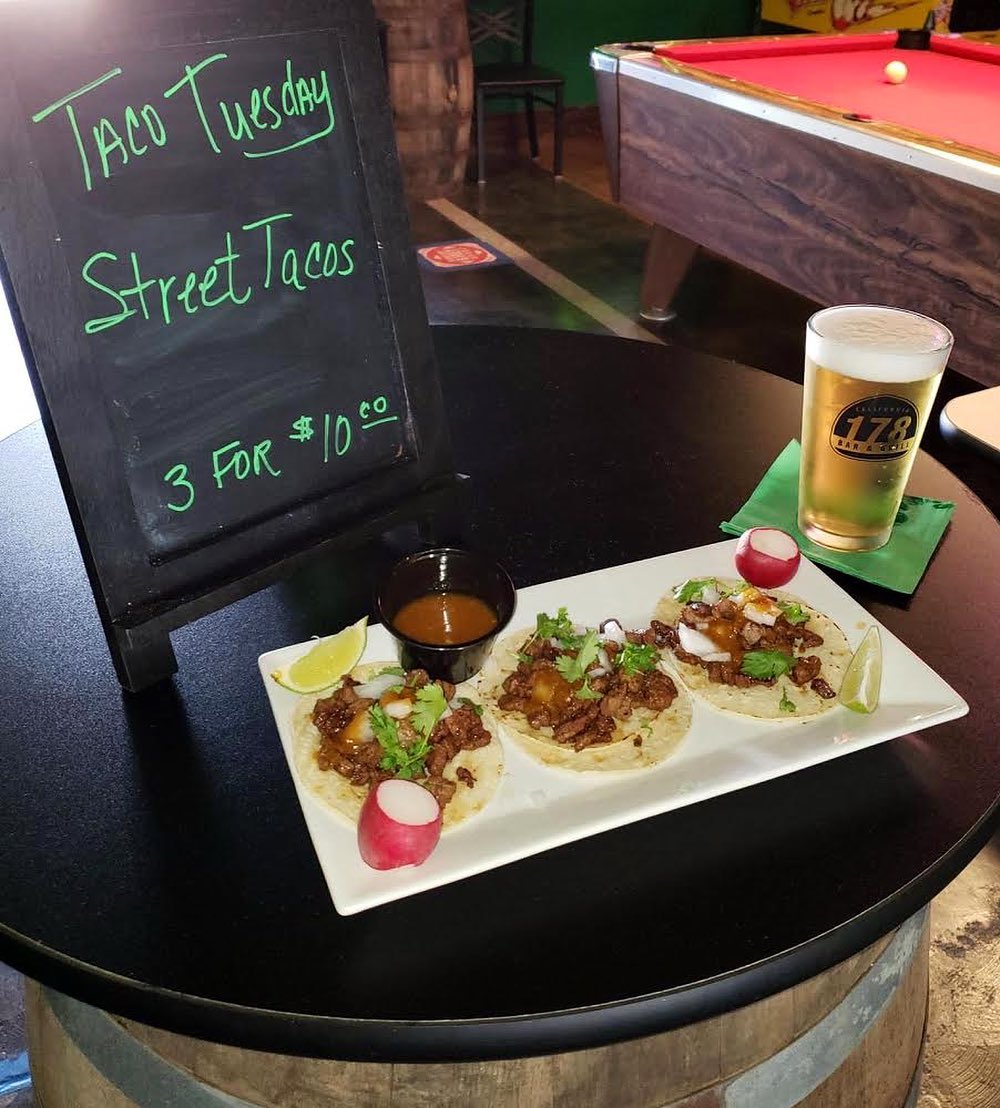 Taco Tuesday
Street Tacos
3 FOR $10 00
CALIFORNIA
178
BAR & GRILL